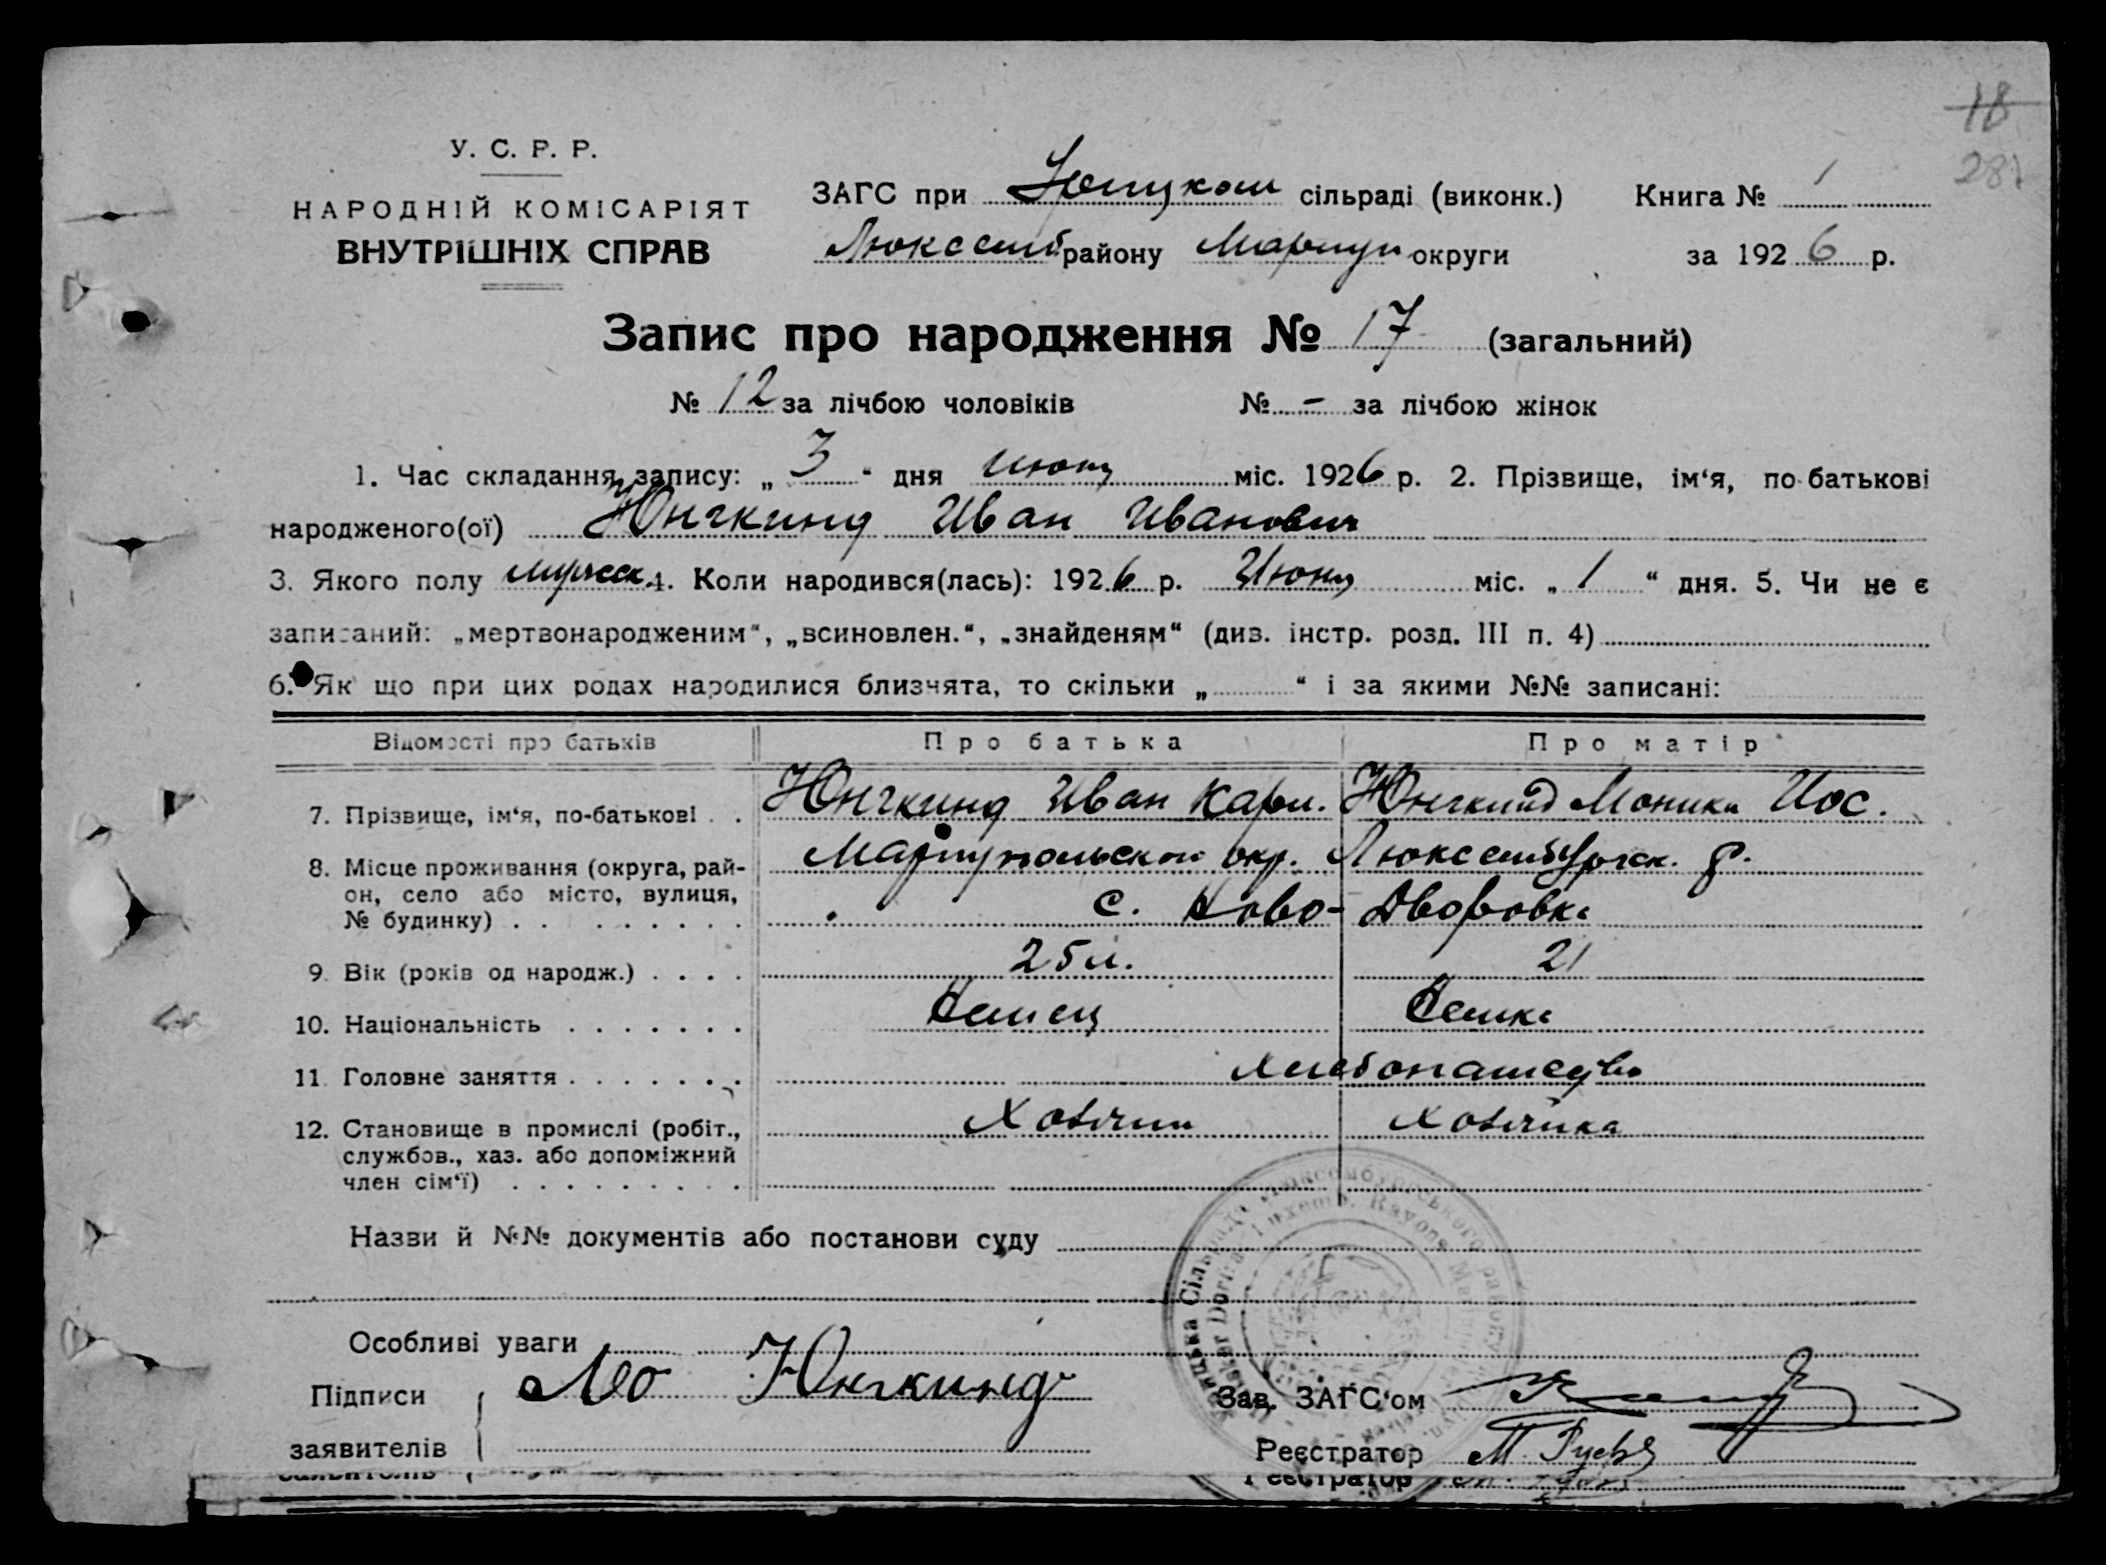 18
281
У. С. Р. Р.
НАРОДНІЙ КОМІСАРІЯТ
ВНУТРІШНІХ СПРАВ
ЗАГС при сільраді (виконк.) Книга № 1
Люксемб району Мариуп округи за 1926 р.
Запис про народження № 17 (загальний)
№ 12 за лічбою чоловіків № - за лічбою жінок
1. Час складання запису: „ 3 “ дня Июня міс. 1926 р. 2. Прізвище, ім‘я, по-батькові
народженого(ої) Юнгкинд Иван Иванович
3. Якого полу мужеск. 4. Коли народився(лась): 1926 р. Июня міс. „ 1 “ дня. 5. Чи не є
записаний: „мертвонародженим“, „всиновлен.“, „знайденям“ (див. інстр. розд. III п. 4)
6. Як що при цих родах народилися близнята, то скільки „ “ і за якими №№ записані:
Відомості про батьків Про батька Про матір
7. Прізвище, ім‘я, по-батькові . . Юнгкинд Иван Карл. Юнгкинд Моника Иос.
8. Місце проживання (округа, рай- Мариупольской окр. Люксембургск. р.
он, село або місто, вулиця, с. Ново- Дворовка
№ будинку) . . . . . . . . .
9. Вік (років од народж.) . . . . 25 л. 21
10. Національність . . . . . . . Немец Немка
11. Головне заняття . . . . . . . хлебопашество
12. Становище в промислі (робіт., Хозяин Хозяйка
службов., хаз. або допоміжний
член сім‘ї) . . . . . . . . .
Назви й №№ документів або постанови суду
Особливі уваги
Підписи Юнгкинд Зав. ЗАГС‘ом
заявителів Реєстратор М.
заявителів Реєстратор